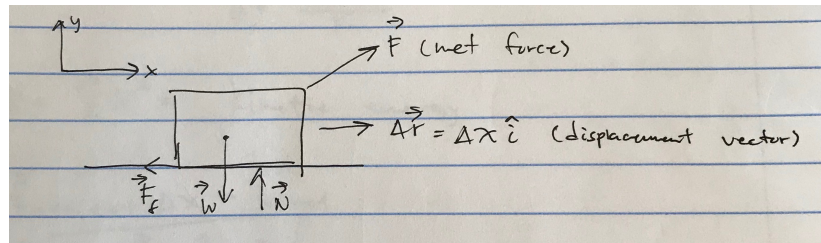 y
F⃗ (net force)
x
Δr⃗ = Δx î (displacement vector)
F⃗f W⃗ N⃗